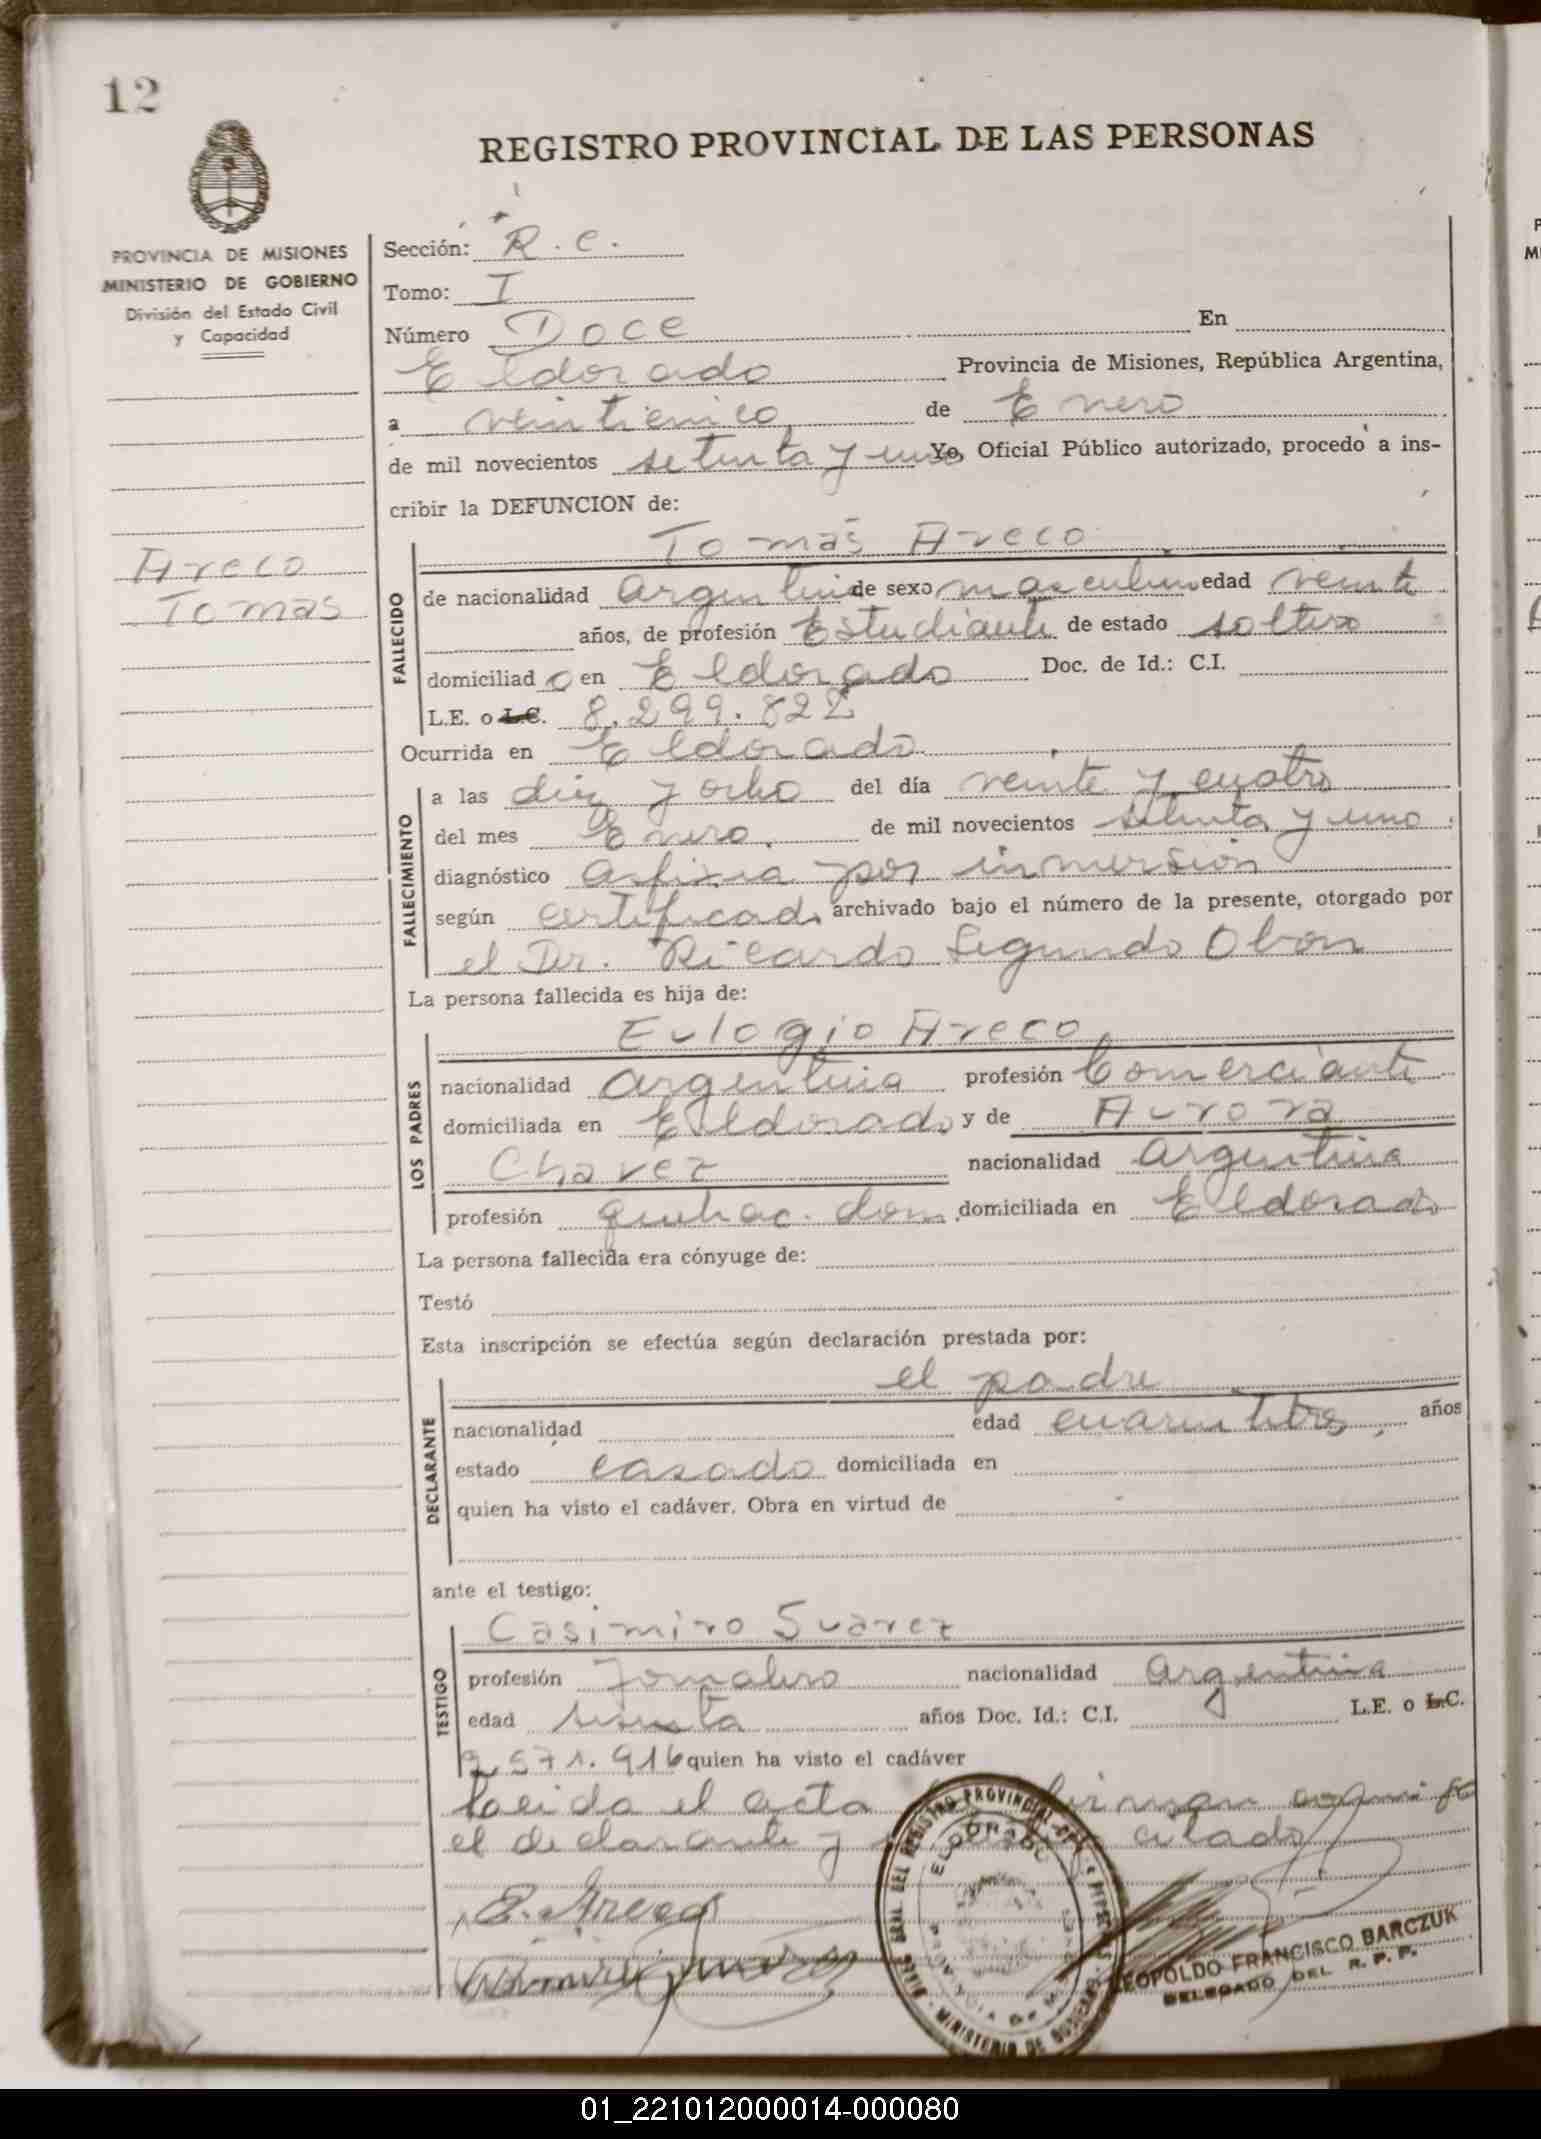 12
REGISTRO PROVINCIAL DE LAS PERSONAS
PROVINCIA DE MISIONES
MINISTERIO DE GOBIERNO
División del Estado Civil
y Capacidad
Areco
Tomas
Sección: R. C.
Tomo: I
Número Doce En
Eldorado Provincia de Misiones, República Argentina,
a veinticinco de Enero
de mil novecientos setenta y uno Yo, Oficial Público autorizado, procedo a ins-
cribir la DEFUNCION de:
Tomás Areco
FALLECIDO
de nacionalidad Argentina de sexo masculino edad veinte
años, de profesión Estudiante de estado soltero
domiciliad o en Eldorado Doc. de Id.: C.I.
L.E. o L.C. 8.299.822
Ocurrida en Eldorado
FALLECIMIENTO
a las diez y ocho del día veinte y cuatro
del mes Enero. de mil novecientos setenta y uno
diagnóstico Asfixia por inmersión
según certificado archivado bajo el número de la presente, otorgado por
el Dr. Ricardo Segundo Obon
La persona fallecida es hija de:
Eulogio Areco
LOS PADRES
nacionalidad argentina profesión Comerciante
domiciliada en Eldorado y de Aurora
Chavez nacionalidad argentina
profesión quehac. dom. domiciliada en Eldorado
La persona fallecida era cónyuge de:
Testó
Esta inscripción se efectúa según declaración prestada por:
el padre
DECLARANTE
nacionalidad edad años
estado casado domiciliada en
quien ha visto el cadáver. Obra en virtud de
ante el testigo:
Casimiro Suarez
TESTIGO
profesión Jornalero nacionalidad Argentina
edad sesenta años Doc. Id.: C.I. L.E. o L.C.
2.571.916 quien ha visto el cadáver
Leida el acta firman
el declarante y citado
E. Areco
LEOPOLDO FRANCISCO BARCZUK
DELEGADO DEL R. P. P.
ELDORADO
01_221012000014-000080